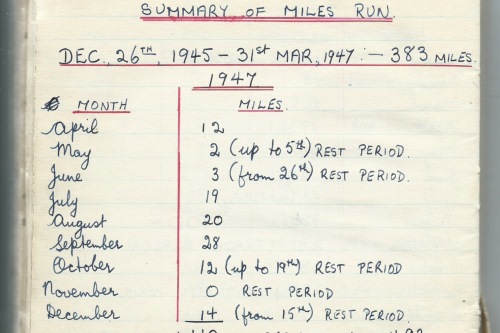 SUMMARY OF MILES RUN.
DEC., 26TH, 1945 – 31st MAR, 1947 :– 383 MILES.
1947
MONTH MILES.
April 12
May 2 (up to 5th) REST PERIOD.
June 3 (from 26th) REST PERIOD.
July 19
August 20
September 28
October 12 (up to 19th) REST PERIOD
November 0 REST PERIOD
December 14 (from 15th) REST PERIOD.